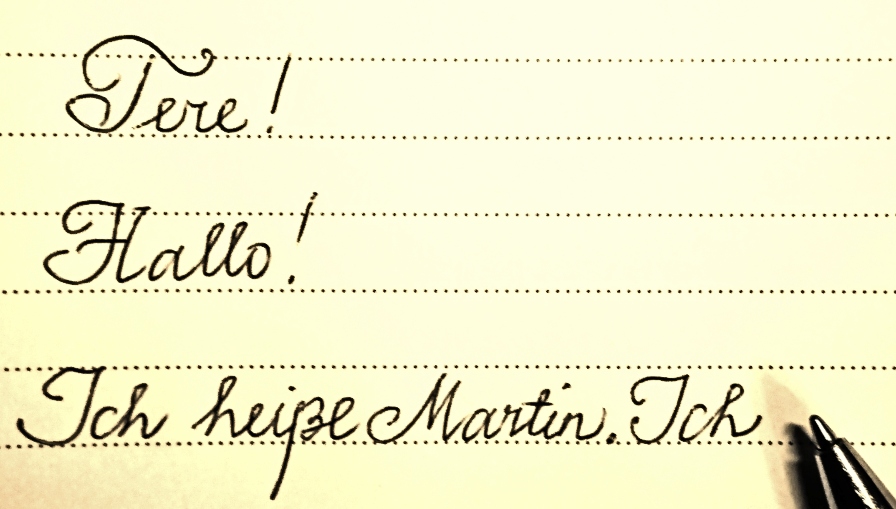 Tere!
Hallo!
Ich heiße Martin. Ich